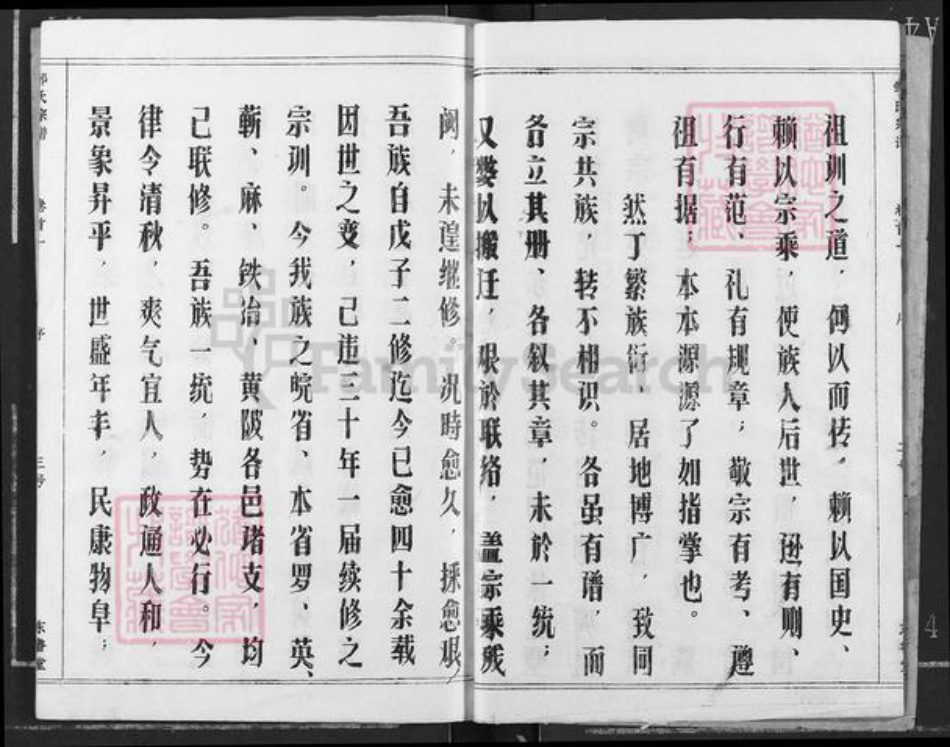 祖训之道，何以而传，赖以国史、
赖以宗乘，使族人后世，进有则、
行有范，礼有规章，敬宗有考、遵
祖有据，本本源源了如指掌也。
然丁繁族衍，居地博广，致同
宗共族，转不相识。各虽有谱，而
各立其册、各叙其章，未於一统，
又婺以搬迁，艰於联络，盖宗乘残
阙，未遑继修。况時愈久，採愈艰
吾族自戊子二修迄今已愈四十余载
因世之变，已违三十年一届续修之
宗训。今我族之皖省、本省罗、英、
蕲、麻、铁冶、黄陂各邑诸支，均
己联修。吾族一统，势在必行。今
律令清秋，爽气宜人，政通人和，
景象昇平，世盛年丰，民康物阜，
氏宗谱
卷首一
序
三号
FamilySearch
A4
4